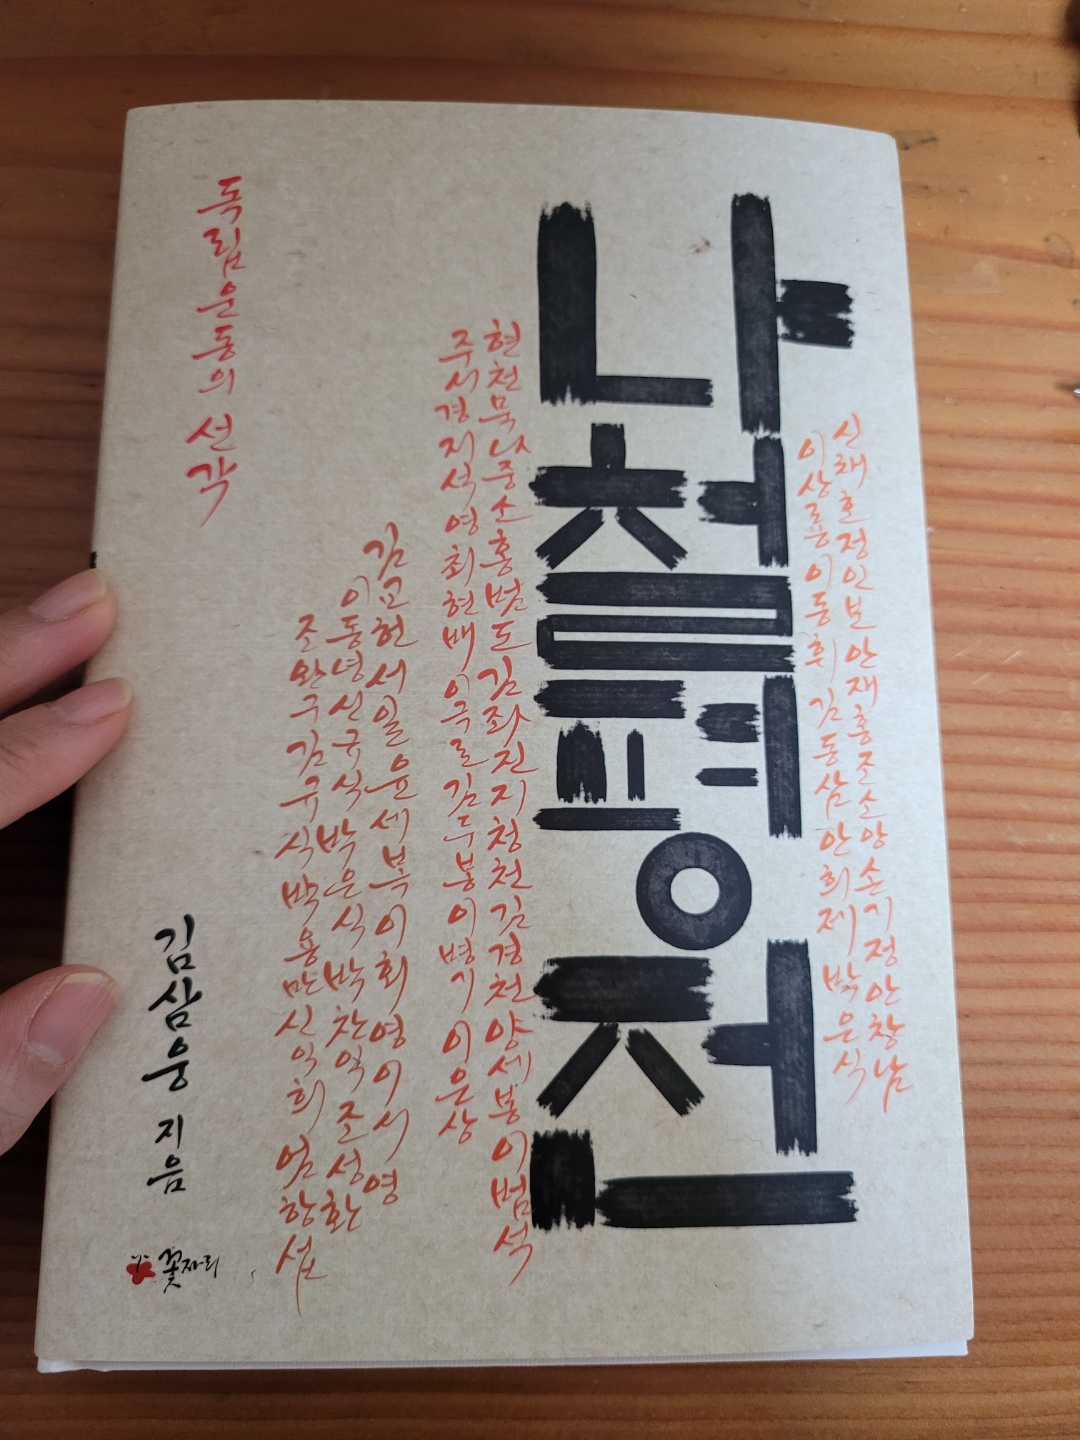 신채호정인보안재홍조소앙손기정안창남
이상룡이동휘김동삼안희제박은식
나철평전
현천묵나중소홍범도김좌진지청천김경천양세봉이범석
주시경지석영최현배이극로김두봉이병기이은상
김교헌서일윤세복이회영이시영
이동녕신규식박은식박찬익조성환
조완구김규식박용만신익희엄항섭
독립운동의 선각
김삼웅 지음
꽃자리